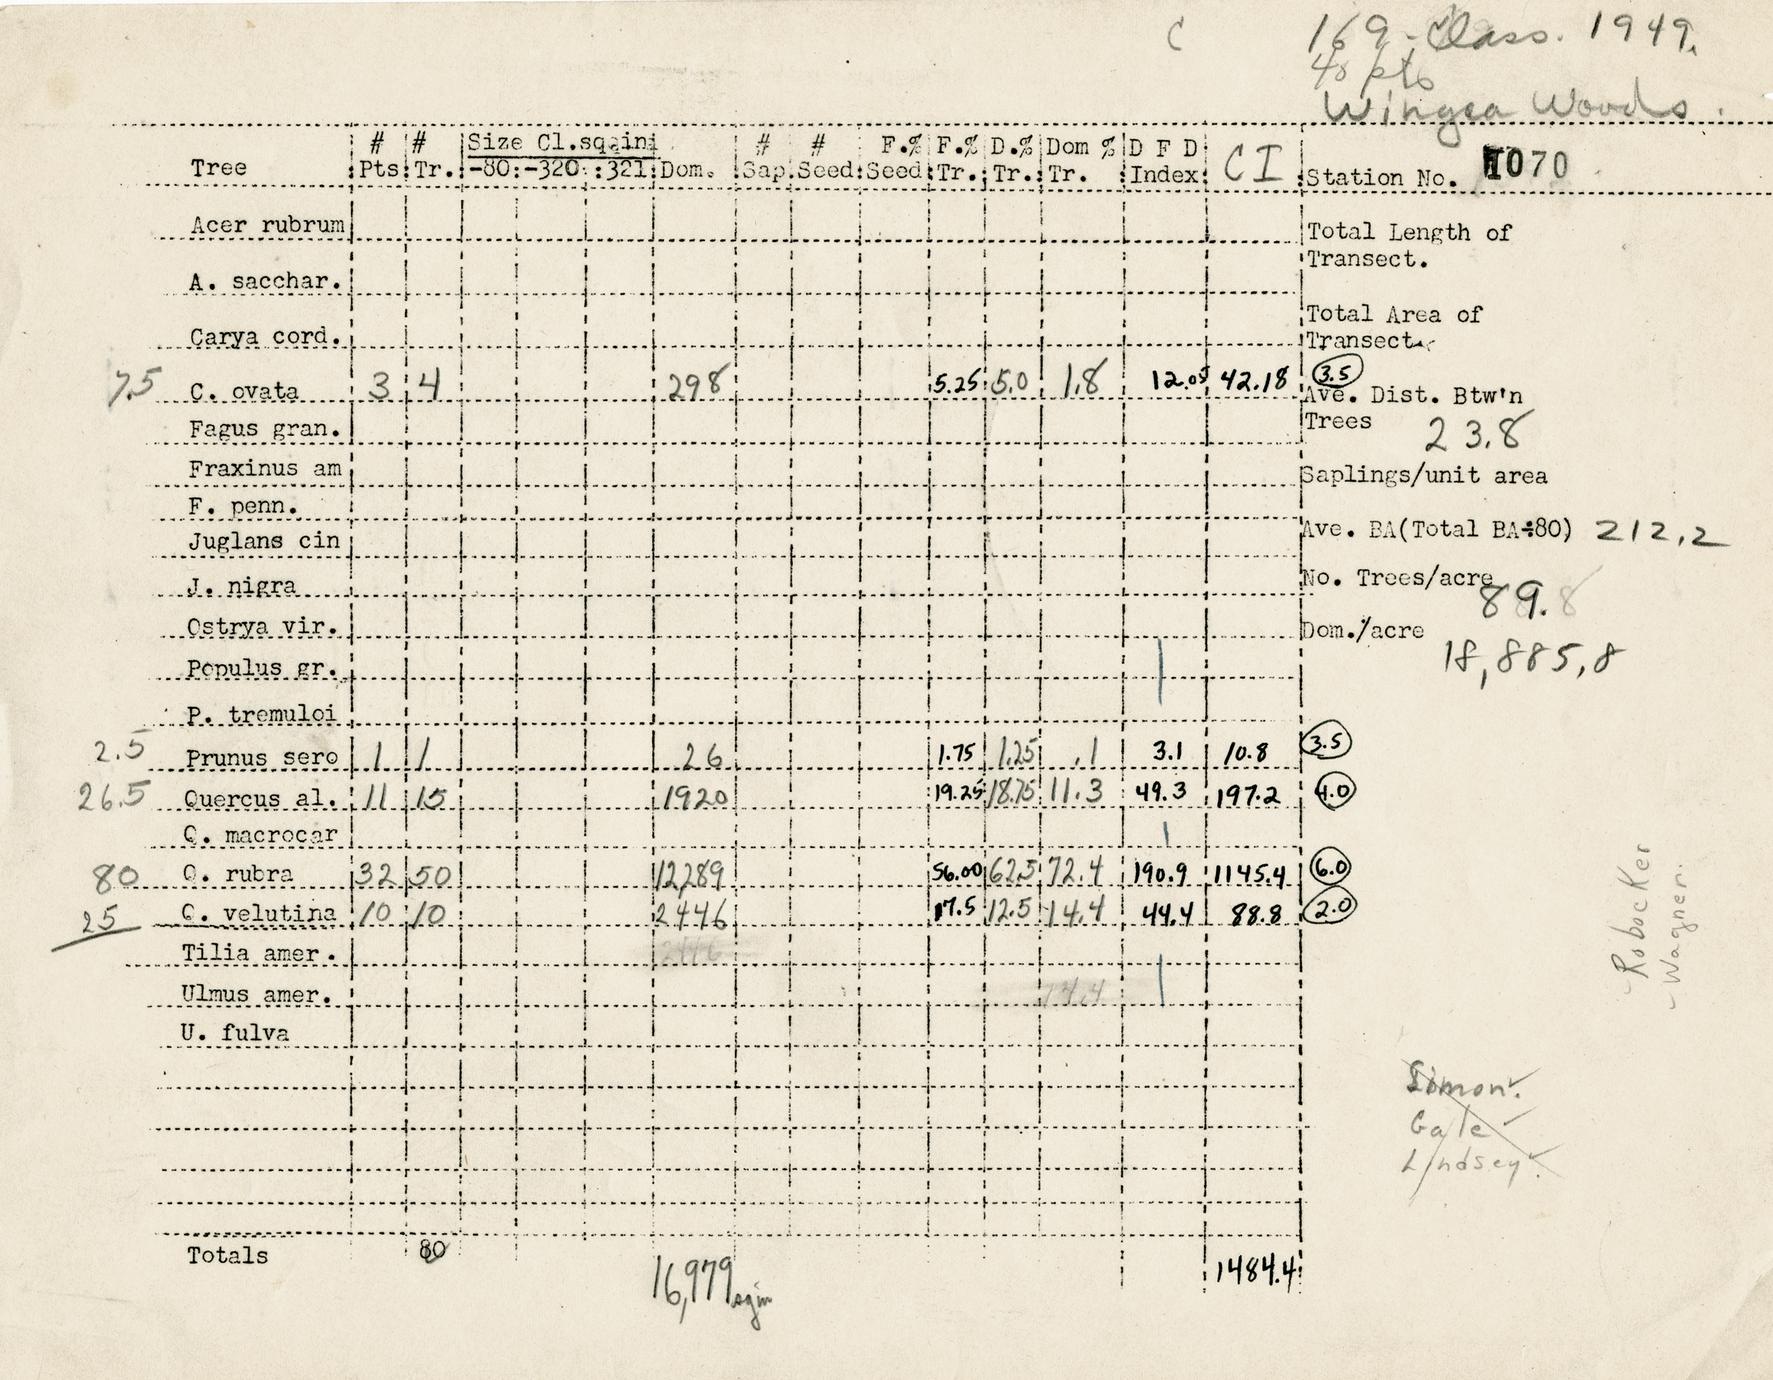 C 169 - Class. 1949.
40 pts
Wingra Woods.
Tree # Pts # Tr. Size Cl.sqain -80:-320::321 Dom. # Sap. # Seed F.% Seed F.% Tr. D.% Tr. Dom % Tr. D F D Index CI Station No. 1070
Acer rubrum
Total Length of
Transect.
A. sacchar.
Total Area of
Transect
Carya cord.
7.5 C. ovata 3 4 298 5.25 5.0 1.8 12.05 42.18 3.5
Ave. Dist. Btw'n
Trees 23.8
Fagus gran.
Fraxinus am
Saplings/unit area
F. penn.
Juglans cin
Ave. BA(Total BA÷80) 212.2
J. nigra
No. Trees/acre
89.8
Ostrya vir.
Dom./acre
18,885.8
Populus gr.
P. tremuloi
2.5 Prunus sero 1 1 26 1.75 1.25 .1 3.1 10.8 3.5
26.5 Quercus al. 11 15 1920 19.25 18.75 11.3 49.3 197.2 4.0
Q. macrocar
80 Q. rubra 32 50 12,289 56.00 62.5 72.4 190.9 1145.4 6.0
25 Q. velutina 10 10 2446 17.5 12.5 14.4 44.4 88.8 2.0
Tilia amer. 2446
Ulmus amer. 14.4
U. fulva
Robocker
Wagner.
Simon.
Gale
Lindsey
Totals 80 16,979 sqin 1484.4